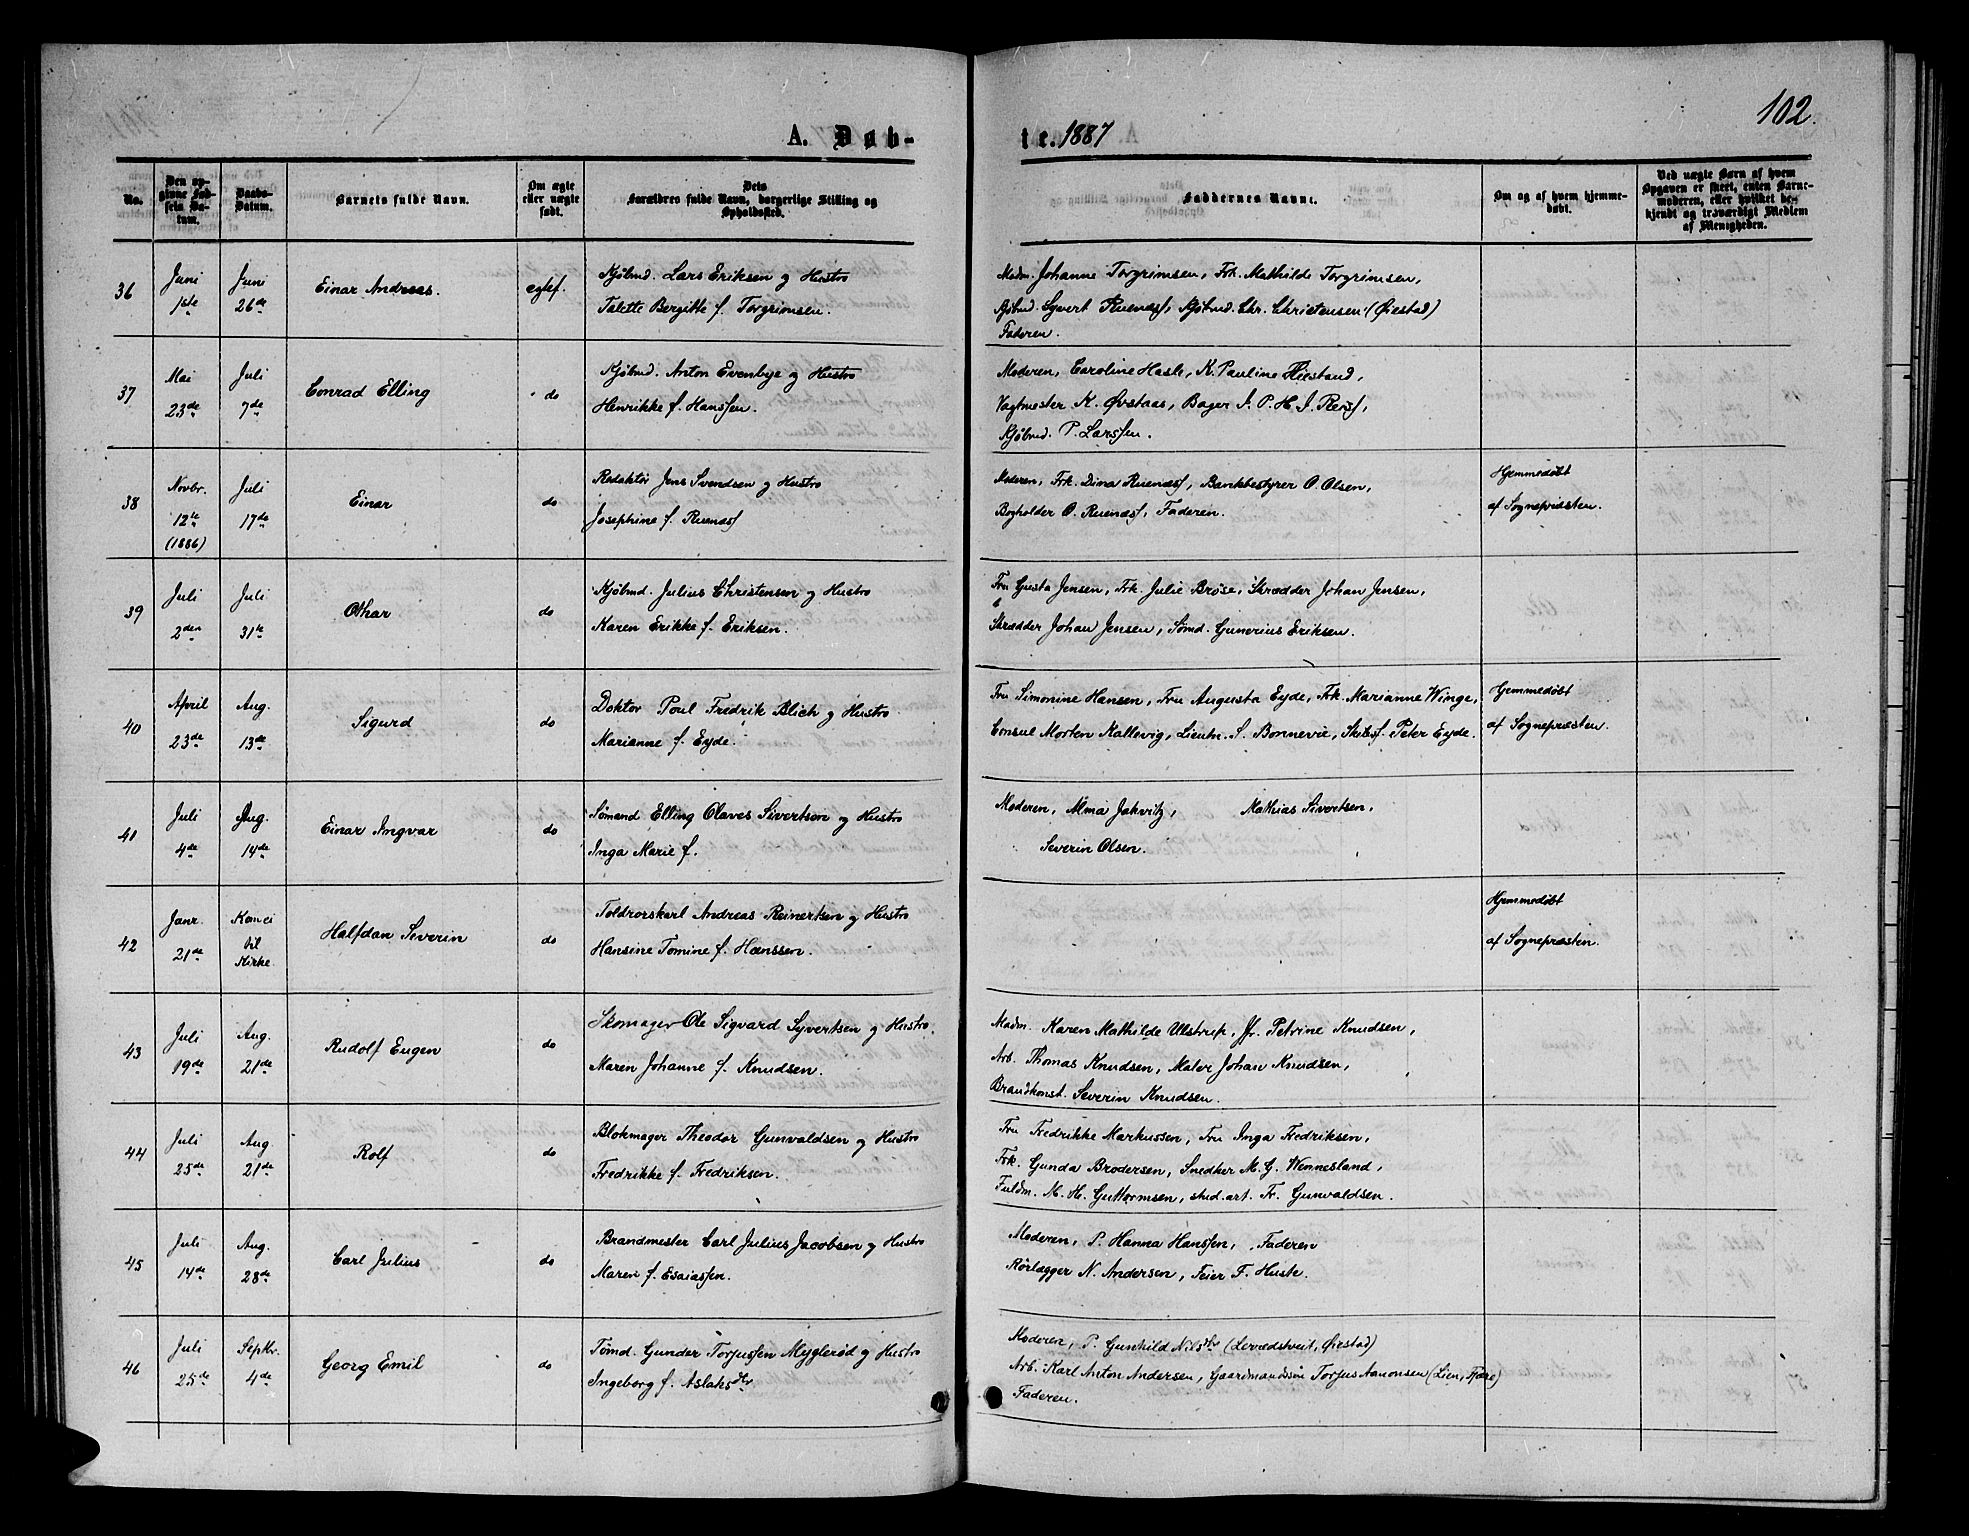 102.
A. Døb-
te. 1887
No.
Den op-
givne Fød-
sels Da-
tum.
Daabs-
Datum.
Barnets fulde Navn.
Om ægte
eller uægte
født.
Dets
Forældres fulde Navn, borgerlige Stilling og
Opholdssted.
Faddernes Navne.
Om og af hvem hjemme-
døbt.
Ved uægte Børn af hvem
Opgaven er skeet, enten Barne-
moderen, eller hvilket be-
kjendt og troværdigt Medlem
af Menigheden.
36
Juni
1ste
Juni
26de
Einar Andreas.
egtef.
Kjøbmd. Lars Eriksen og Hustro
Talette Bergitte f. Torgrimsen.
Madm. Johanne Torgrimsen, Frk. Mathilde Torgrimsen,
Kjøbmd. Syvert Ruenæss, Kjøbmd. Chr. Christensen (Øiestad)
Faderen.
37
Mai
23de
Juli
7de
Conrad Elling
do
Kjøbmd. Anton Evenbye og Hustro
Henrikke f. Hanssen.
Moderen, Caroline Hasle, K. Pauline Hiestand,
Vagtmester K. Øvstaas, Bager J. P. H. J. Reiss,
Kjøbmd. P. Larssen.
38
Novbr.
12te
(1886)
Juli
17de
Einar
do
Redaktør Jens Svendsen og Hustro
Josephine f. Ruenæss
Moderen, Frk. Dina Ruenæss, Bankbestyrer O. Olsen,
Bogholder O. Ruenæss, Faderen.
Hjemmedøbt
af Sognepræsten.
39
Juli
2den
Juli
31te
Othar
do
Kjøbmd. Julius Christensen og Hustro
Karen Erikke f. Eriksen.
Fru Gusta Jensen, Frk. Julie Brøse, Skrædder Johan Jensen,
Skrædder Johan Jensen, Sømd. Gunerius Eriksen.
40
April
23de
Aug.
13de
Sigurd
do
Doktor Poul Fredrik Blich og Hustro
Marianne f. Eyde.
Fru Simonine Hansen, Fru Augusta Eyde, Frk. Marianne Winge,
Consul Morten Kallevig, Lieutn. S. Bonnevie, Skibsf. Peter Eyde.
Hjemmedøbt
af Sognepræsten.
41
Juli
4de
Aug.
14de
Einar Ingvar
do
Sømand Elling Olaves Sivertsen og Hustro
Inga Marie f.
Moderen, Alma Jakvitz, Mathias Sivertsen,
Severin Olsen.
42
Janr.
21de
Kom ei
til
Kirke.
Halfdan Severin
do
Toldrorskarl Andreas Reinertsen og Hustro
Hansine Tomine f. Hanssen.
Hjemmedøbt
af Sognepræsten.
43
Juli
19de
Aug.
21de
Rudolf Eugen
do
Skomager Ole Sigvard Syvertsen og Hustro
Maren Johanne f. Knudsen.
Madm. Karen Mathilde Ulstrup, Jfr. Petrine Knudsen,
Arb. Thomas Knudsen, Maler Johan Knudsen,
Brandkonst. Severin Knudsen.
44
Juli
25de
Aug.
21de
Rolf
do
Blokmager Theodor Gunvaldsen og Hustro
Fredrikke f. Fredriksen.
Fru Fredrikke Markussen, Fru Inga Fredriksen,
Frk. Gunda Brodersen, Snedker M. G. Wennesland,
Fuldm. N. H. Guttormsen, stud. art. Fr. Gunvaldsen.
45
Juli
14de
Aug.
28de
Carl Julius
do
Brandmester Carl Julius Jacobsen og Hustro
Maren f. Esaiassen.
Moderen, P. Hanna Hanssen, Faderen
Rørlægger N. Andersen, Feier F. Huste.
46
Juli
25de
Septbr.
4de
Georg Emil
do
Tømd. Gunder Torjussen Myglerød og Hustro
Ingeborg f. Aslaksdtr
Moderen, P. Gunhild Nilsdtr (Lerrædstveit, Øiestad)
Arb. Karl Anton Andersen, Gaardmandssøn Torjus Aanonsen (Lien, Fjære)
Faderen.